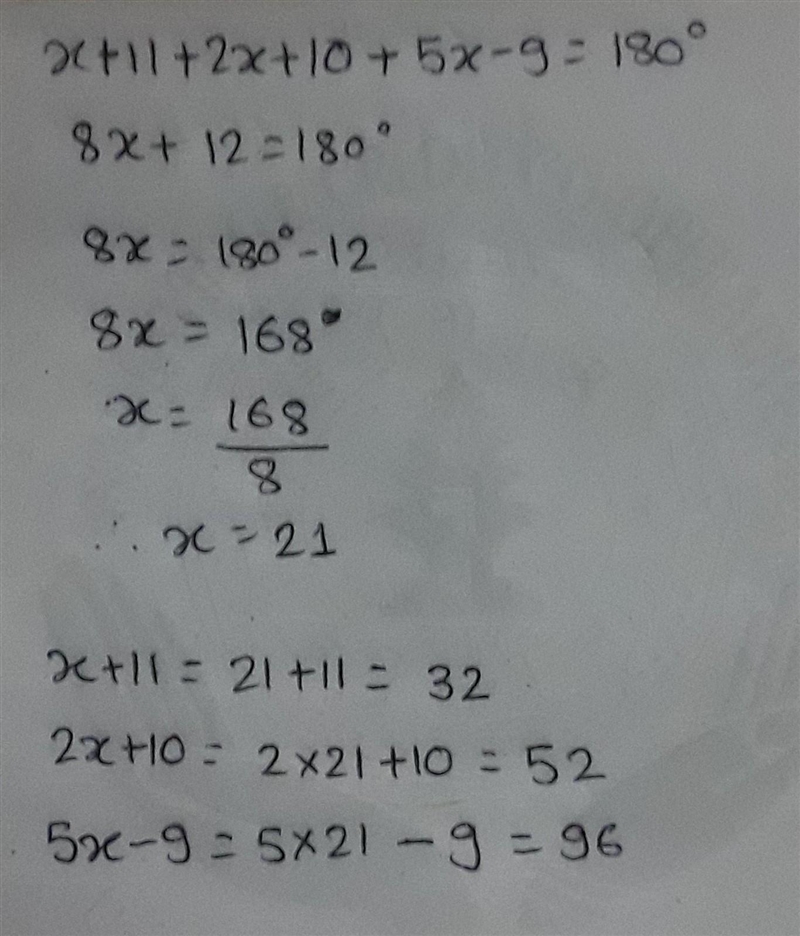 x+11+2x+10+5x-9=180°
8x+12=180°
8x=180°-12
8x=168°
x=168/8
∴ x=21
x+11=21+11=32
2x+10=2×21+10=52
5x-9=5×21-9=96